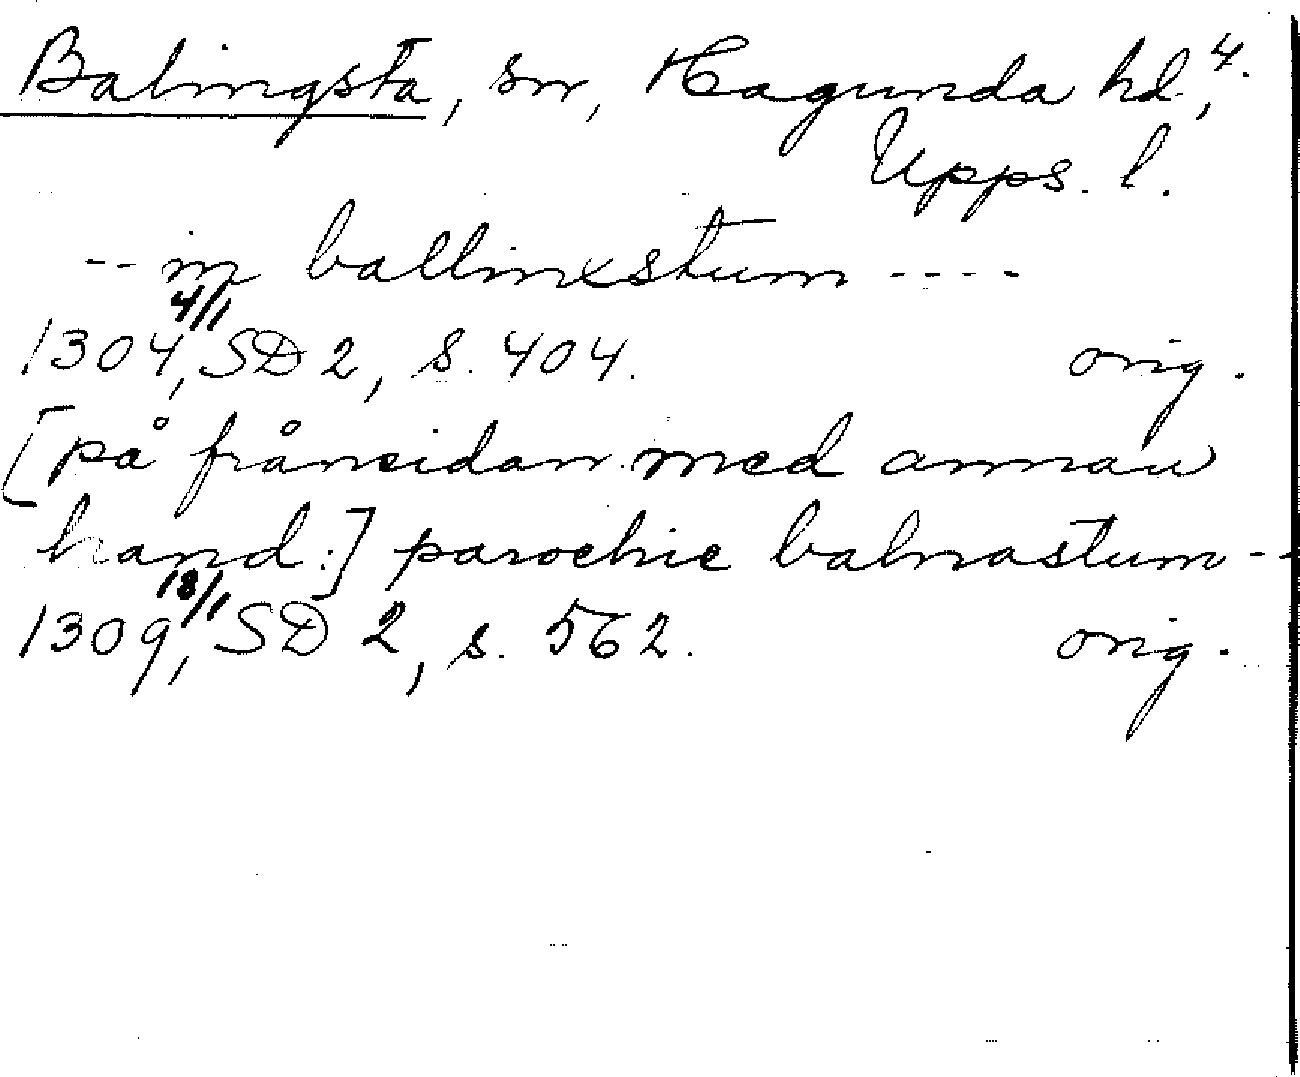 Balingsta, sn, Hagunda hd, 4.
Upps. l.
-- in ballinxstum ----
1304 4/1, SD 2, s. 404. orig.
[på frånsidan med annan
hand:] parochie balnastum --
1309 18/1, SD 2, s. 562. orig.